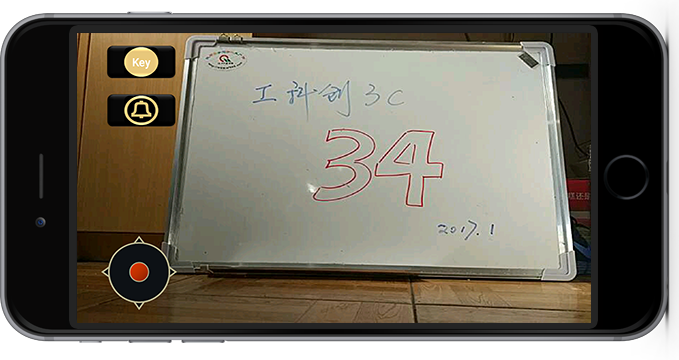 Key
工科创3C
34
2017.1